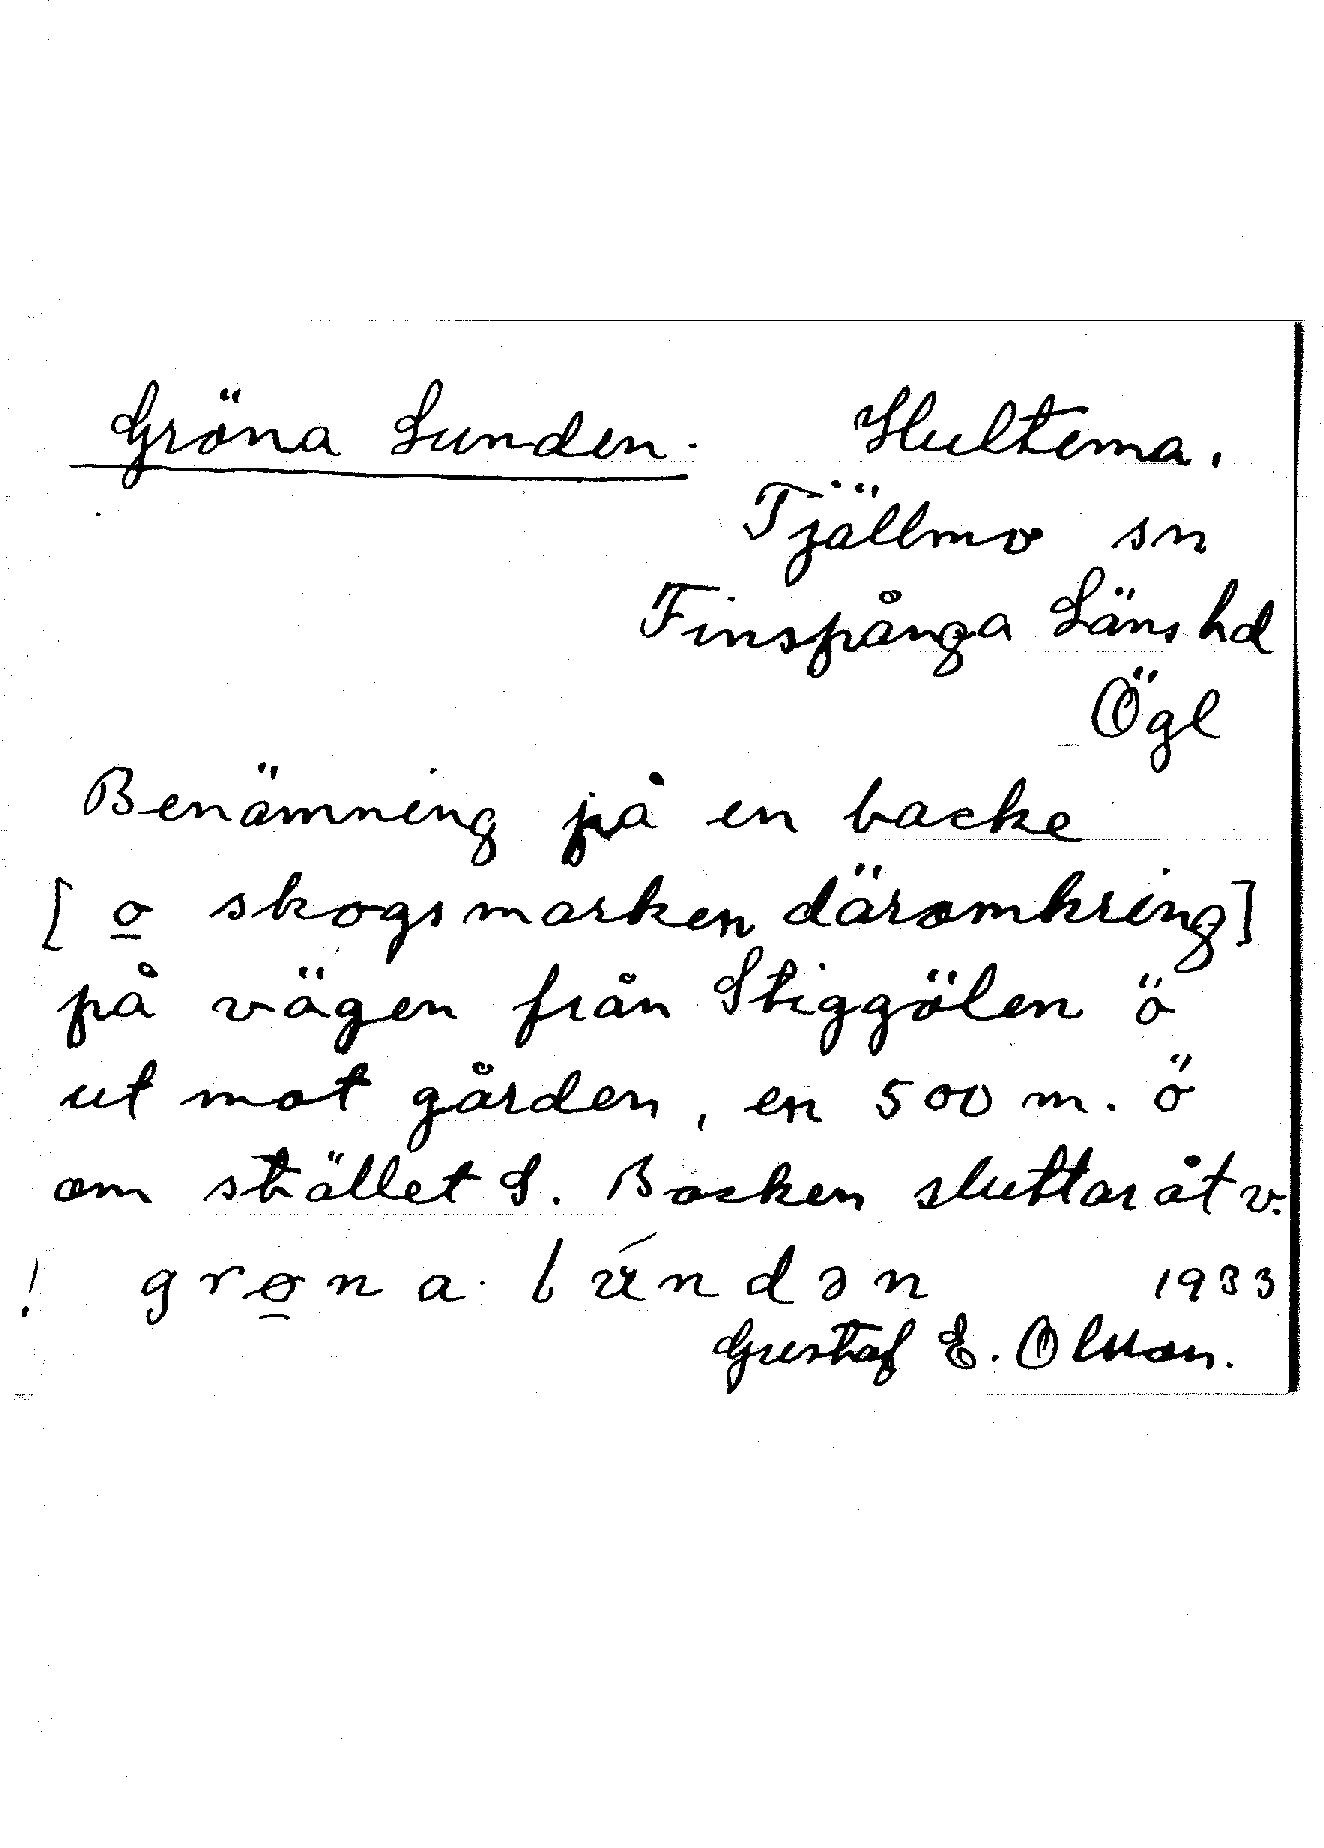 Gröna Lunden. Hultema.
Tjällmo sn
Finspånga Läns hd
Ögl
Benämning på en backe
[o skogsmarken däromkring]
på vägen från Stiggölen ö
ut mot gården, en 500 m. ö
om stället S. Backen sluttar åt v.
! grøna lúndən 1933
Gustaf E. Olsson.